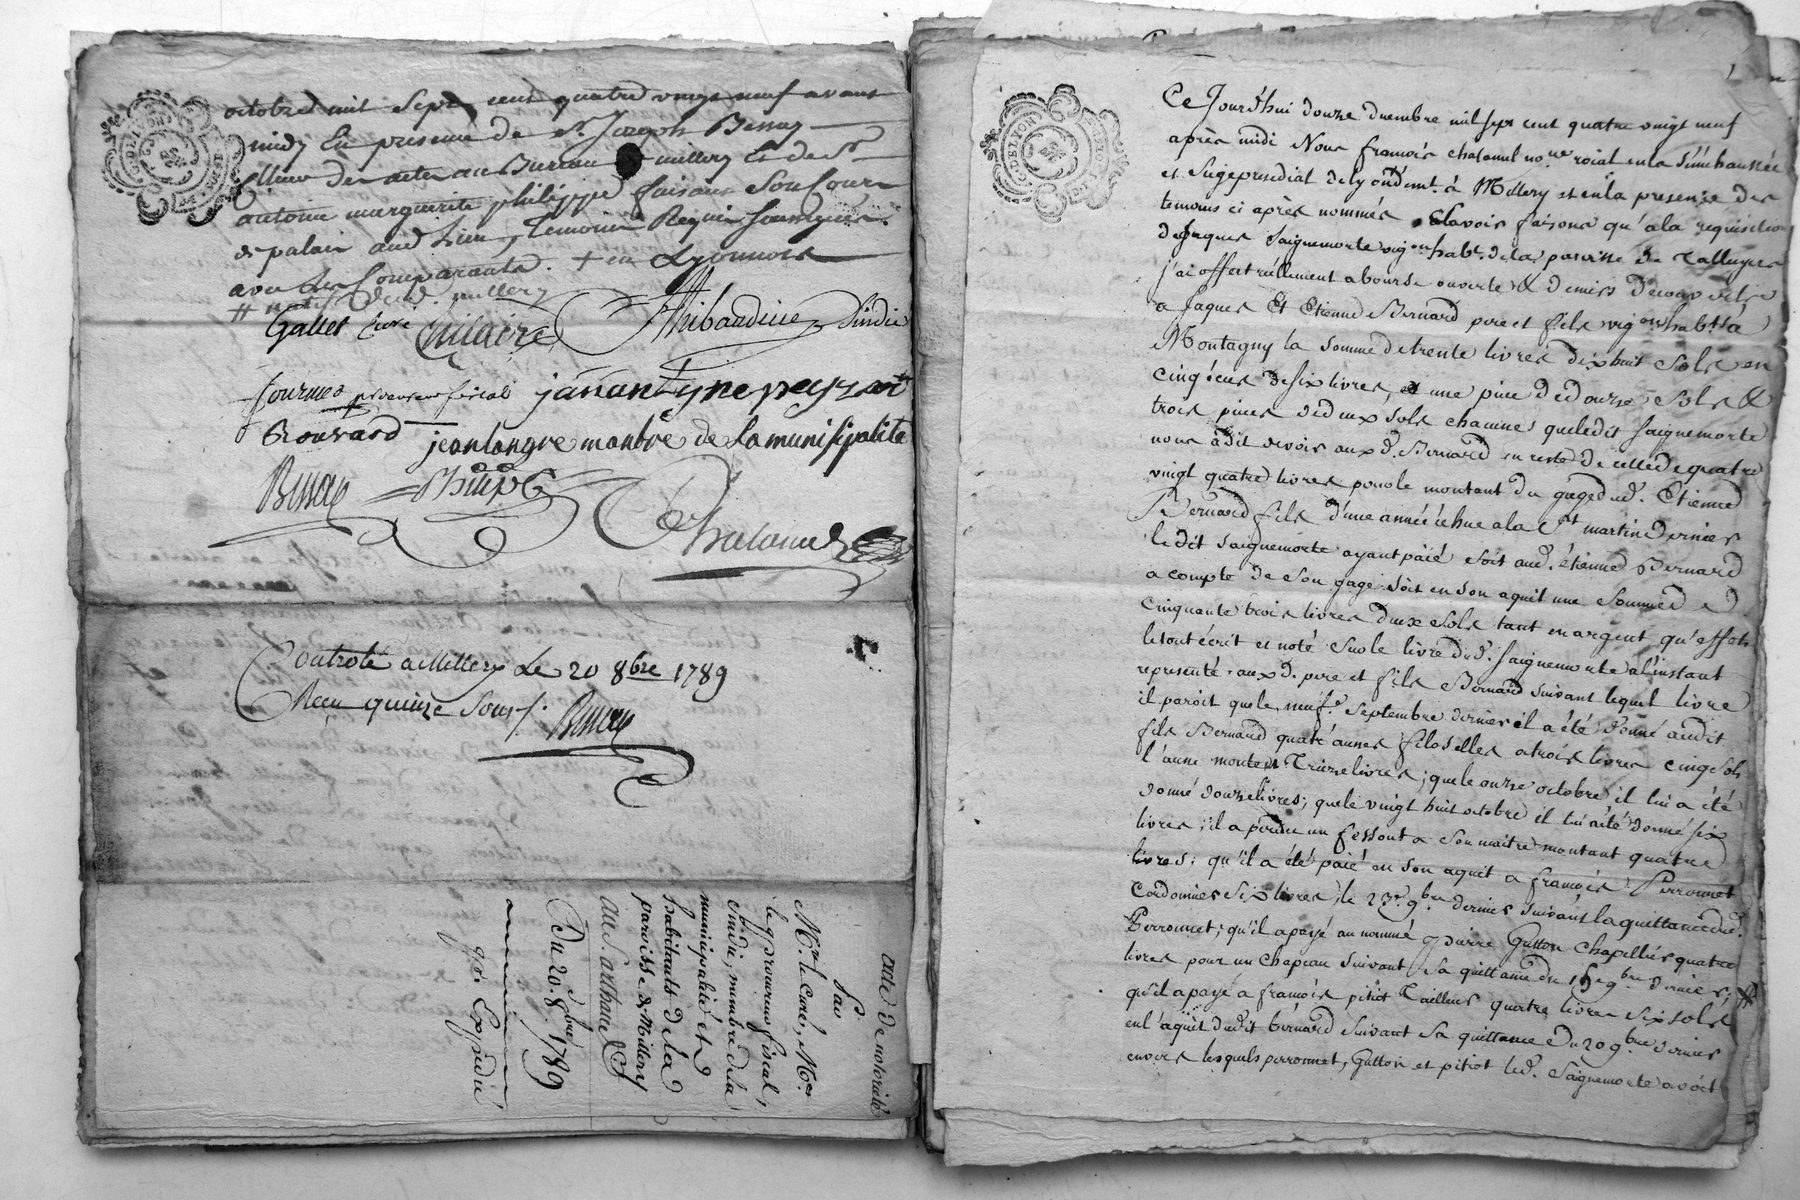 octobre mil sept cent quatre vingt neuf avant
midy En presence de sr. Joseph Bessay
des actes au Bureau millery et de Sr
antoine marguerite philippe faisant Son Cour
de palais aud. Lieu, Temoins Requis Soussignés
avec les Comparants. + en Lyonnois
millery
Gallet curé hilaire Thibaudier Sindic
fournel procureur fiscal janantyne peyzon
Brouvard jean langre manbre de la munisipalite
Bessay Philippe
Chaland
Controlé a Millery Le 20 8bre 1789
Recu quinze Sous. Bessay
acte de notorieté
Par
Mr. le Curé, Mr.
le procureur fiscal,
Sindic, membre de la
municipalité et
habitants de la
paroisse de Millery
Du 20. 8bre 1789
gd. Expedié
DE LYON
GENERALITE
1
Ce Jourd'hui douze decembre mil sept cent quatre vingt neuf
après midi Nous francois chaland nore. roial en la Sénéchaussée
et Siege presidial de lyon demt. à Millery et en la presence des
temoins ci après nommés Sçavoir faisons qu'a la requisition
de Jaques Saignemorte vigon habt. de la paroisse de Talluyers
j'ai offert réellement a bourse ouverte & deniers
a Jaques Et Etienne Bernard pere et fils vigons habts. à
Montagny la somme de trente livres dix huit Sols en
cinq écus de six livres, une piece de douze Sols &
trois pieces de deux sols chacune, que ledit Saignemorte
nous à dit devoir aux d. Bernard en reste de celle de quatre
vingt quatre livres pour le montant du gage dud. Etienne
Bernard fils d'une année échue a la St martin dernier
ledit Saignemorte ayant païé soit aud. étienne Bernard
a compte de son gage soit en son aquit une Somme de
cinquante trois livres deux Sols tant en argent qu'effets
le tout écrit et noté sur le livre dud. Saignemorte a l'instant
representé aux d. pere et fils Bernard suivant lequel livre
il paroit que le neuf Septembre dernier il a été donné audit
fils Bernard quatre aunes filoselles a trois livres cinq sols
l'aune montent Treize livres; que le onze octobre il lui a été
donné douze livres; que le vingt huit octobre il lui a été donné six
livres; il a perdu un fessout a son maitre montant quatre
livres; qu'il a été païé en son aquit a francois Perronnet
Cordonnier Six livres, le 23e. 9bre dernier suivant la quittance dud.
Perronnet; qu'il a payé au nommé pierre Gutton Chapellier quatre
livres pour un chapeau suivant Sa quittance du 9bre dernier;
qu'il a payé a francois pitiot Tailleur quatre livres six sols
en l'aquit dudit bernard suivant Sa quittance du 20 9bre dernier
envers lesquels perronnet, Gutton et pitiot led. Saignemorte avoit